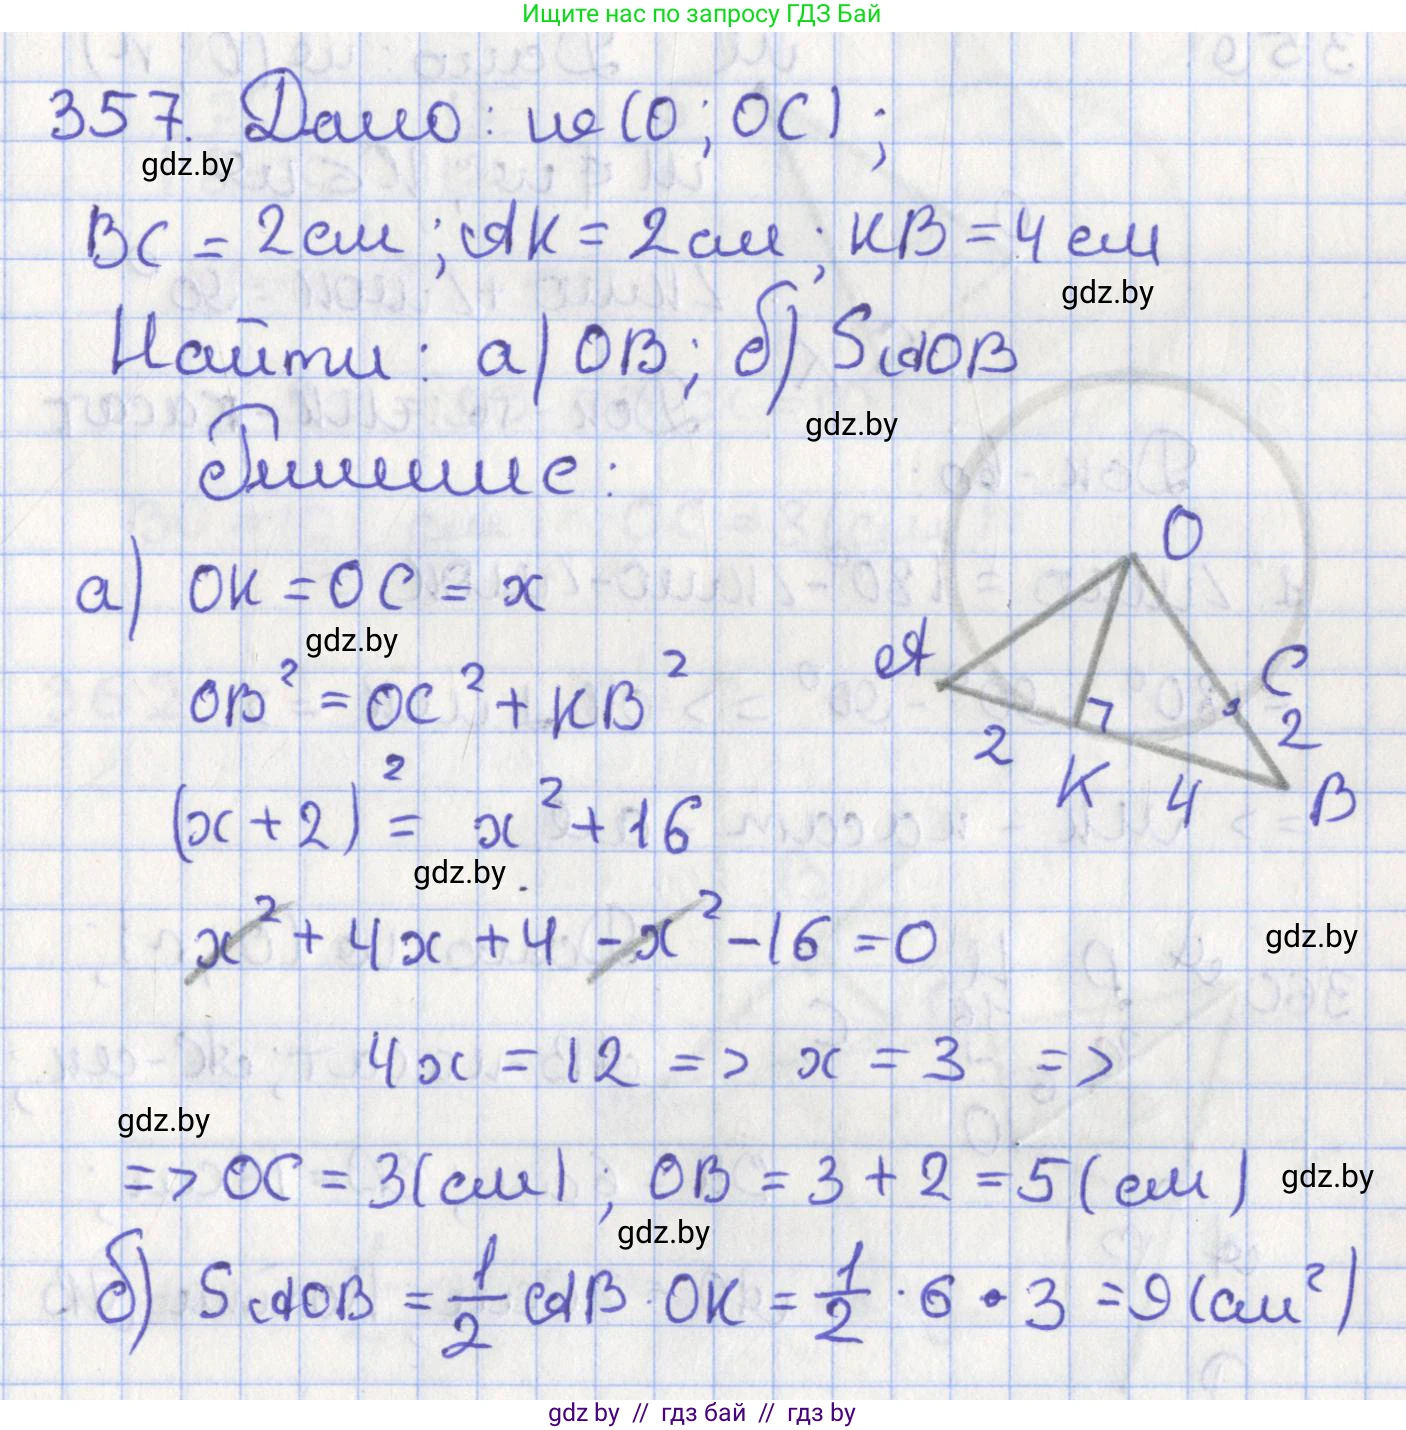 Ищите нас по запросу ГДЗ Бай
357. Дано: ω(O; OC);
gdz.by
BC = 2 см; AK = 2 см; KB = 4 см
gdz.by
Найти: а) OB; б) SAOB
gdz.by
Решение:
O
а) OK = OC = x
gdz.by
A
C
OB² = OC² + KB²
2
2
K
4
B
(x + 2)² = x² + 16
gdz.by
x² + 4x + 4 - x² - 16 = 0
gdz.by
4x = 12 => x = 3 =>
gdz.by
=> OC = 3 (см); OB = 3 + 2 = 5 (см)
gdz.by
gdz.by
б) SAOB = 1/2 AB · OK = 1/2 · 6 · 3 = 9 (см²)
gdz.by // гдз бай // гдз by